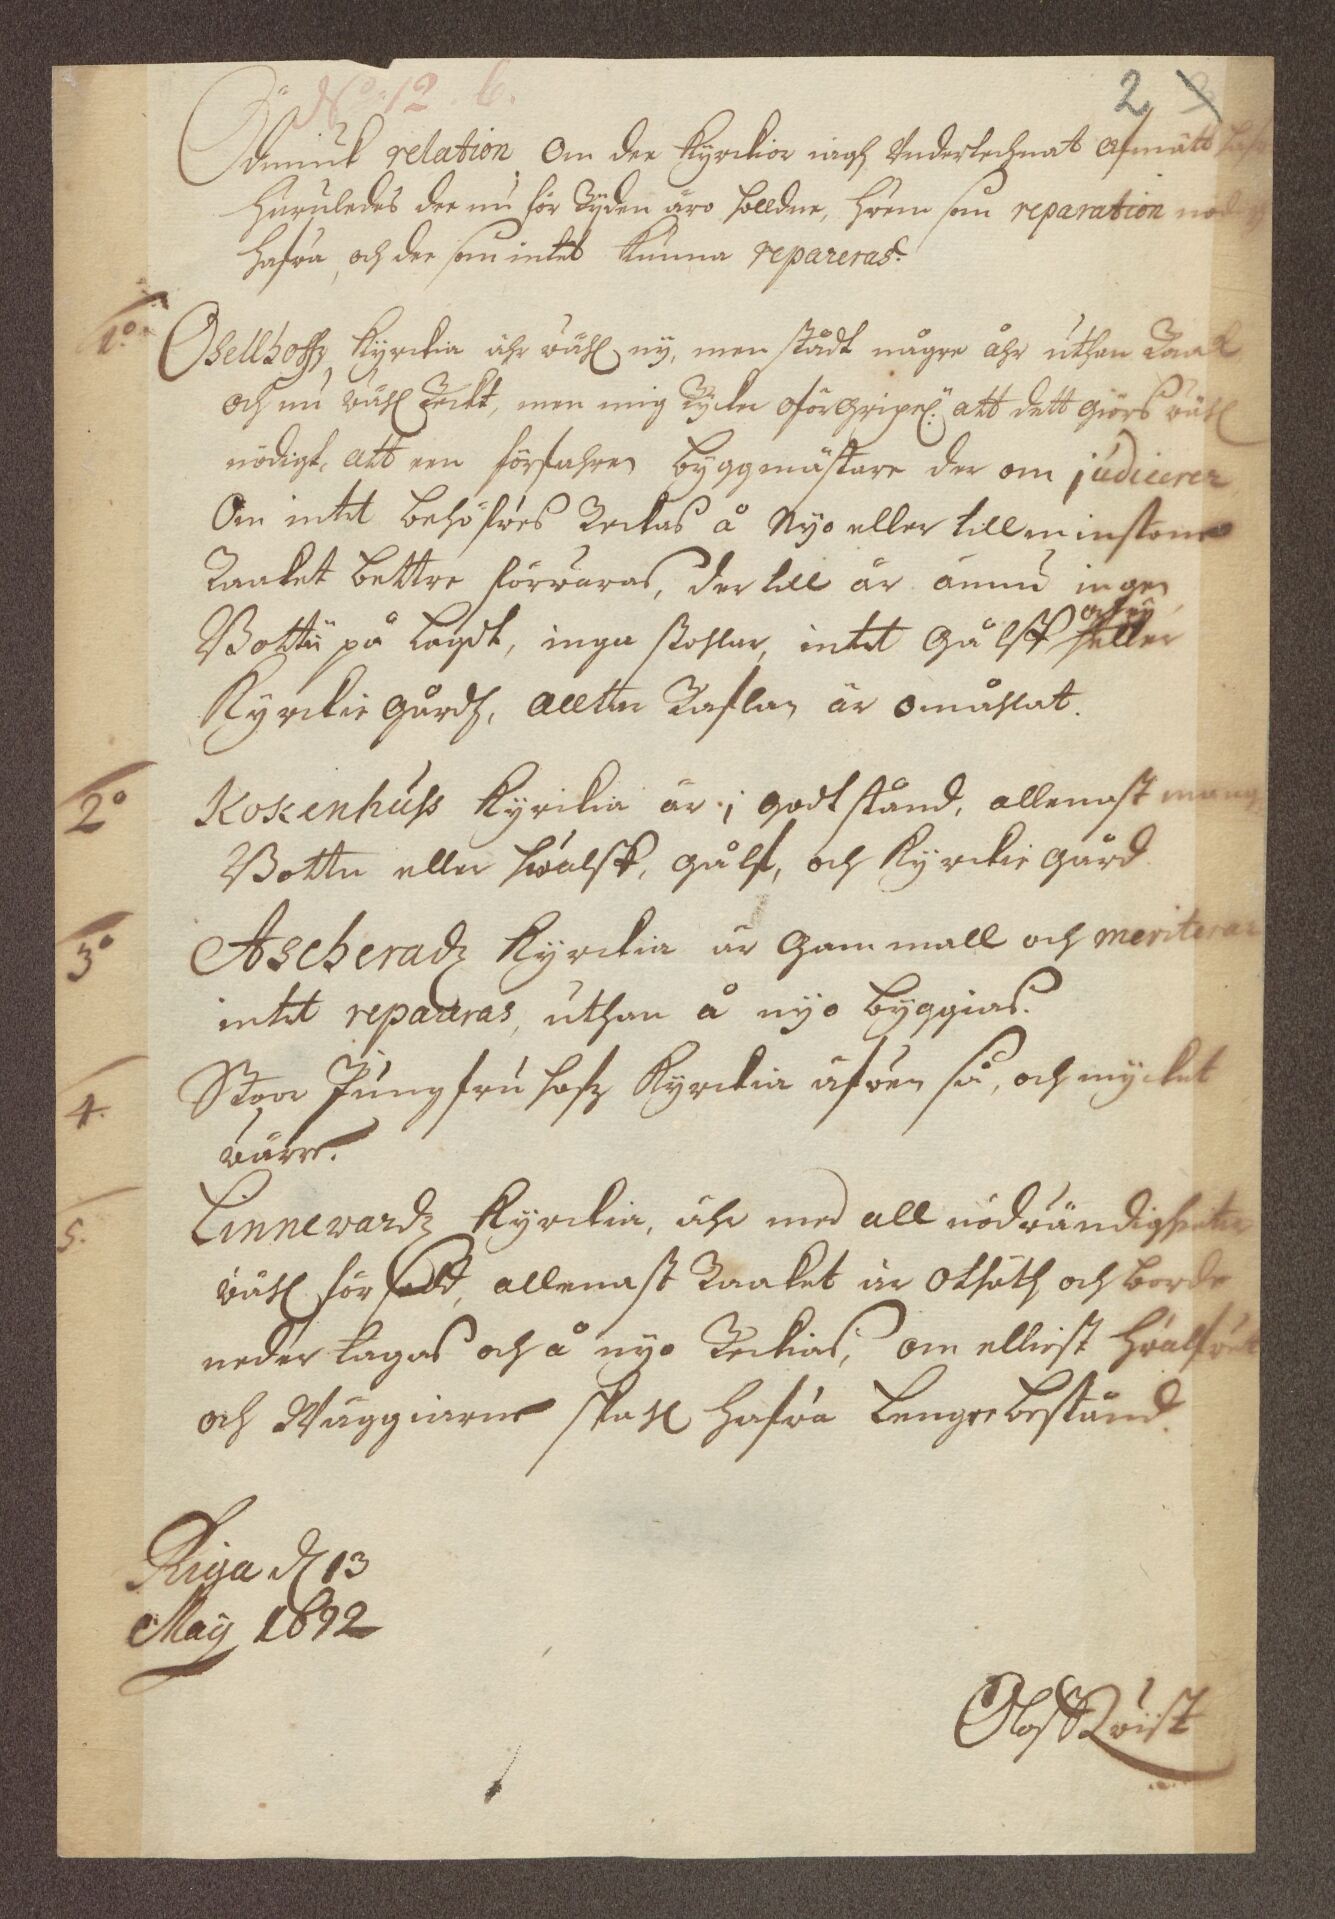 No 12. 6.
2
Ödmiuk relation om dee Kyrckior iagh Undertechnat afmätt hafr
huruledes dee nu för Tyden äro holldne, hwem som reparation nödigt
hafwa, och dee som intet kunna repareras.
1o Osellhoffz Kyrckia ähr wähl ny, men städt någre åhr uthan Taak
och nu wähl Teckt, men mig Tycker oförgripel: att dett giörs wähl
nödigt, att een förfahren byggmästare der om judicerer
Om intet behöfwes Teckas å Nyo eller till minstone
Taaket bettre förwaras, der till är ännu ingen
Bottn på lagdt, inga stohlar, intet gålff heller
Kyrckie gårdh, alltar Taflan är omåhlat.
2o Kokenhuss Kyrckia är i godt stånd, allenast
Bottn eller hwalff, gålf, och Kyrckie gård
3o Ascheradz Kyrckia är gammall och meriterar
intet reparras, uthan å nyo byggias.
4. Stoor Jungfru hofz Kyrckia äfwen så, och mycket
wärre.
5. Linnewardz Kyrckia, ähr med all nödwändigheter
wähl försedt, allenast Taaket är otheth och borde
neder tagas och å nyo Teckias, om elliest hwalfwet
och Wäggiarne skahl hafwa lengre bestånd.
Riga d 13
May 1692
Olof Qwist